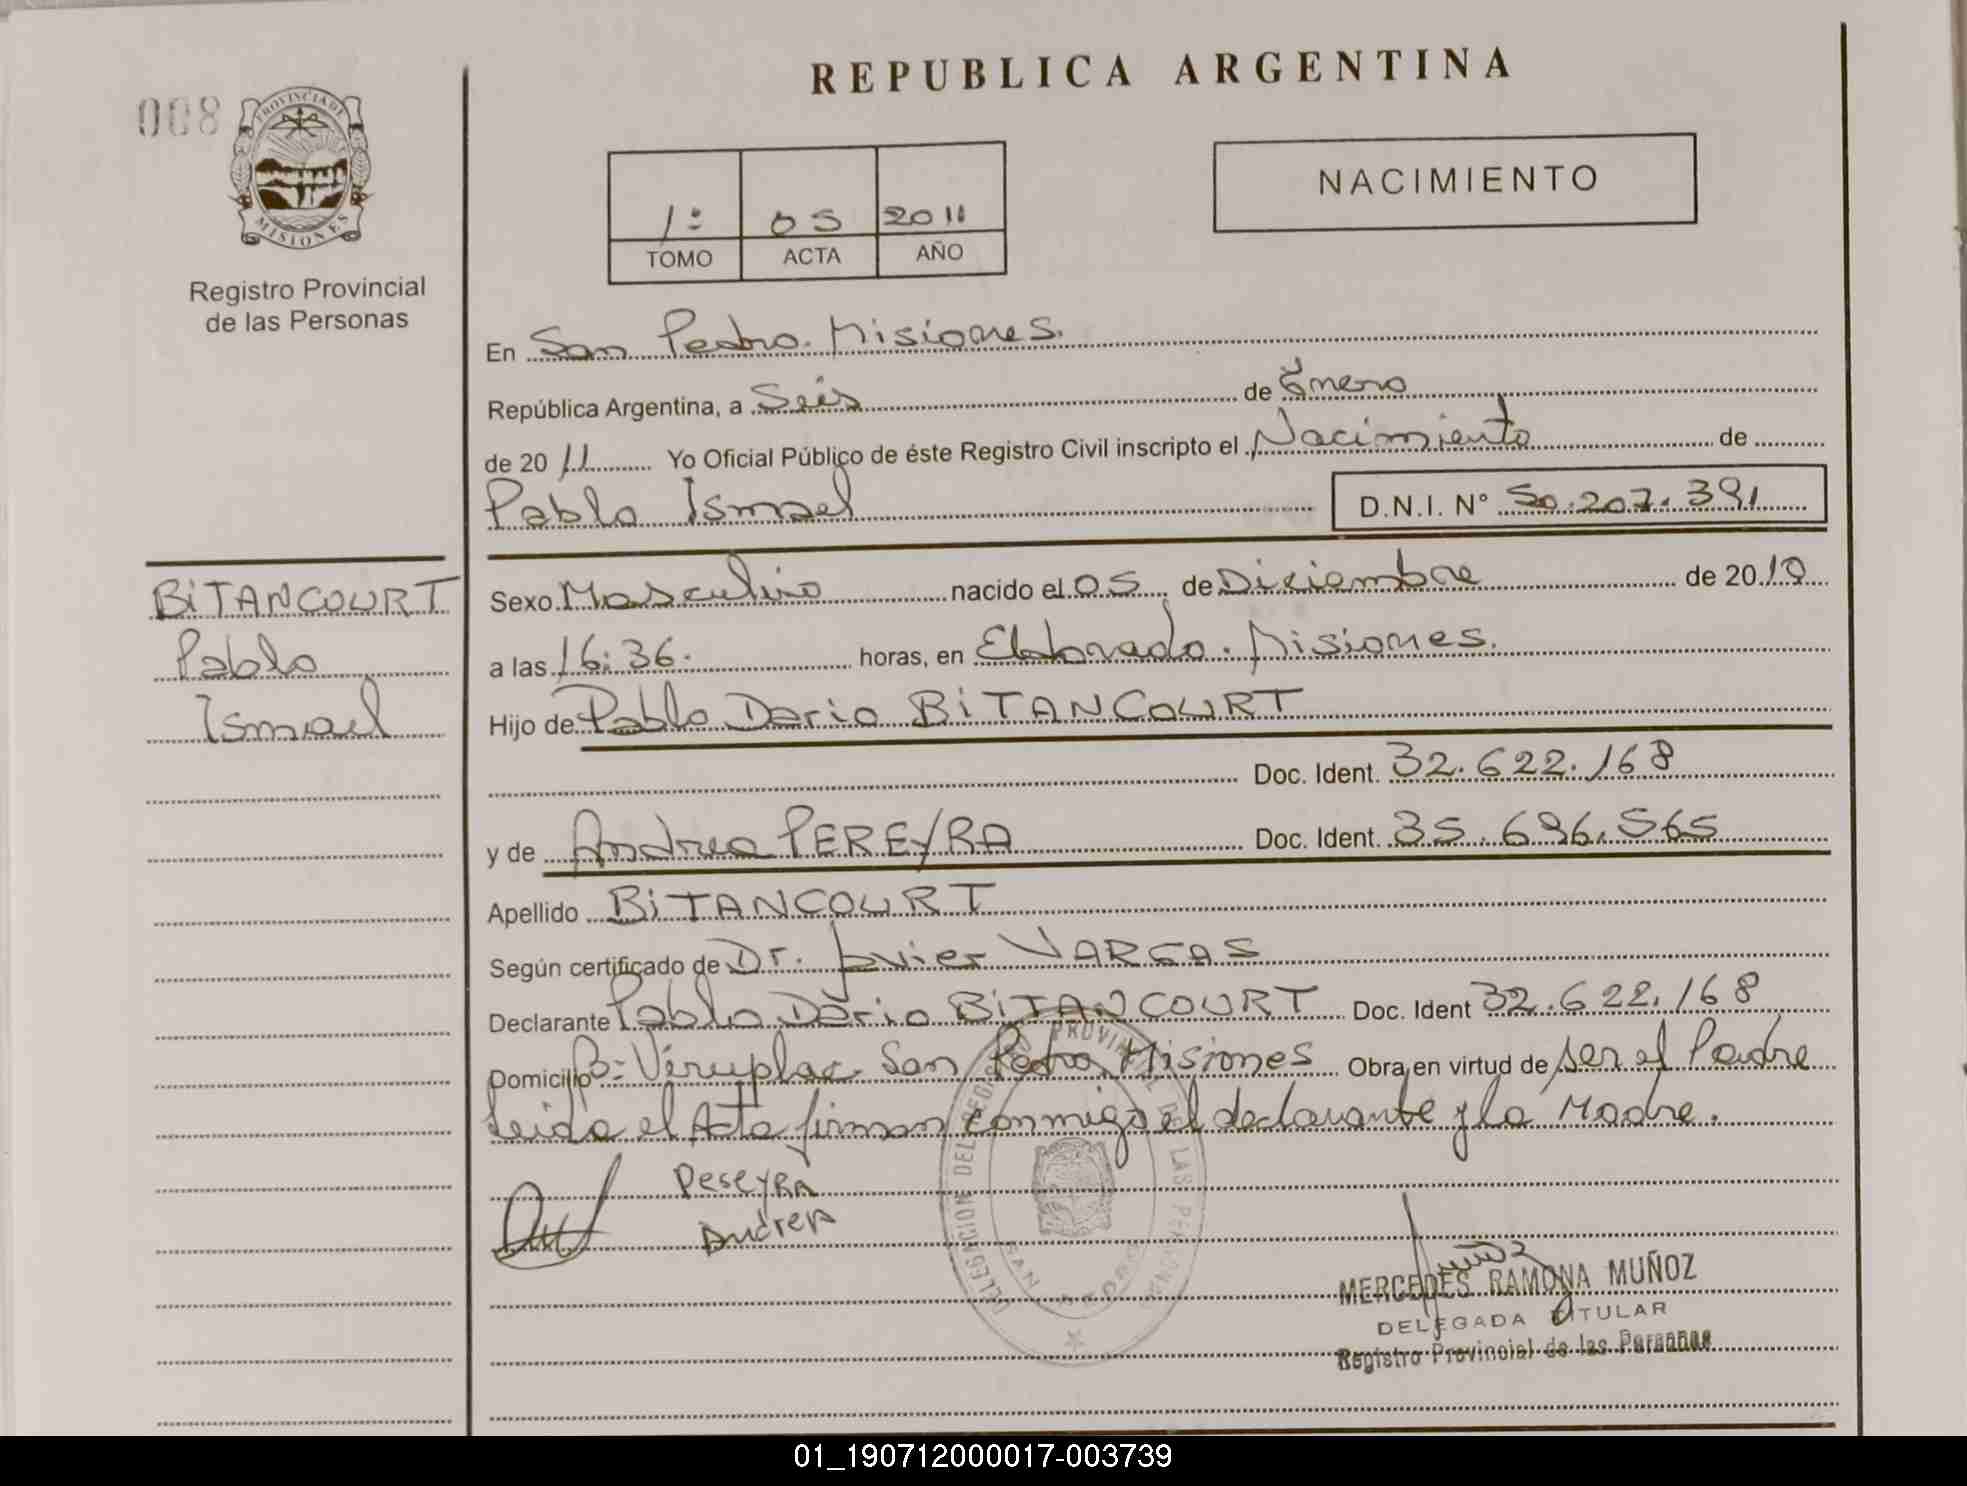 REPUBLICA ARGENTINA
008
PROVINCIA DE
MISIONES
Registro Provincial
de las Personas
NACIMIENTO
1º 05 2011
TOMO ACTA AÑO
En San Pedro. Misiones.
República Argentina, a Seis de Enero
de 20 11 Yo Oficial Público de éste Registro Civil inscripto el Nacimiento de
Pablo Ismael D.N.I. N° 50.207.391
BiTANCOURT
Pablo
Ismael
Sexo Masculino nacido el 05 de Diciembre de 2010
a las 16:36. horas, en Eldorado. Misiones.
Hijo de Pablo Dario BiTANCOURT
Doc. Ident. 32.622.168
y de Andrea PEREYRA Doc. Ident. 35.696.565
Apellido BiTANCOURT
Según certificado de Dr. Javier VARGAS
Declarante Pablo Dario BiTANCOURT Doc. Ident 32.622.168
Domicilio San Pedro Misiones Obra en virtud de ser el Padre
Leida el Acta firman conmigo el declarante y la Madre.
PeseyRA
AndreA
DELEGACION DEL REGISTRO PROVINCIAL DE LAS PERSONAS
SAN PEDRO
MERCEDES RAMONA MUÑOZ
DELEGADA TITULAR
Registro Provincial de las Personas
01_190712000017-003739